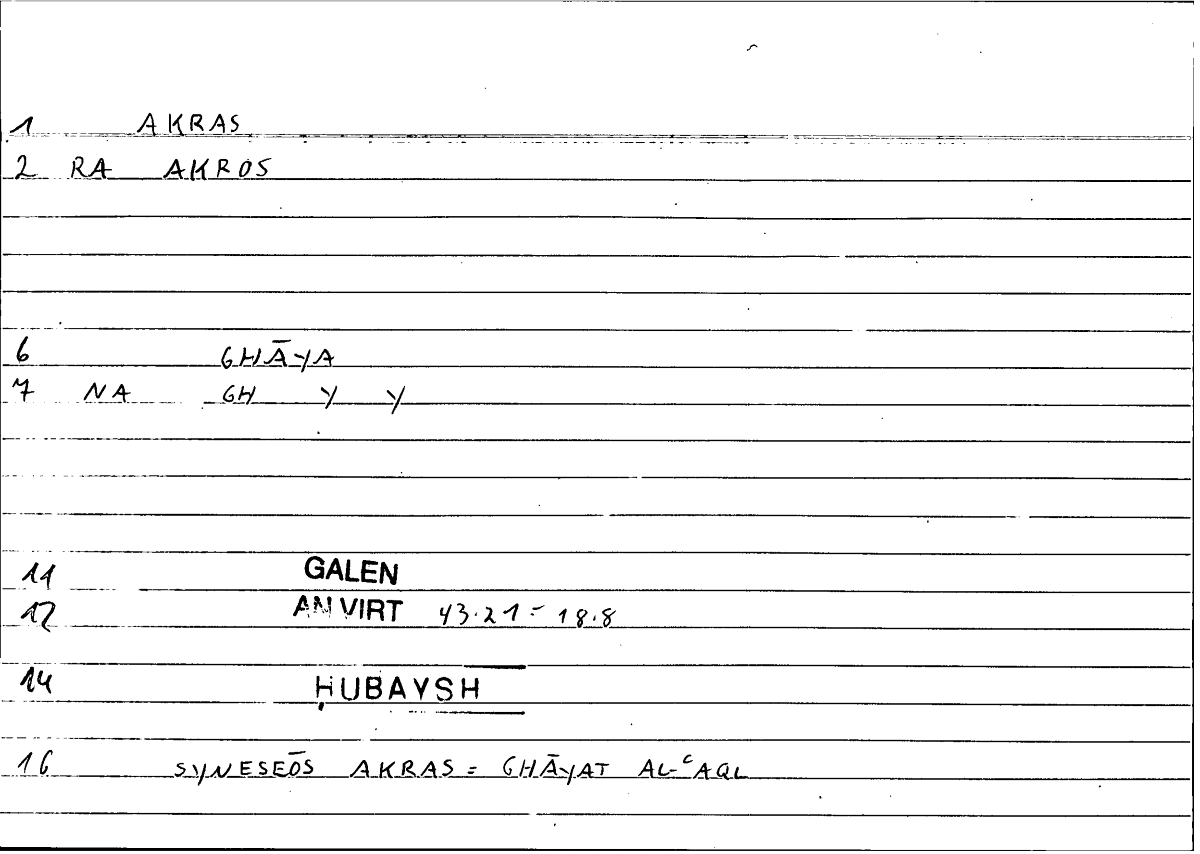 1 AKRAS
2 RA AKROS
6 GHĀYA
7 NA GH Y Y
11 GALEN
12 AN VIRT 43.21 = 18.8
14 ḤUBAYSH
16 SYNESEŌS AKRAS = GHĀYAT AL-ᶜAQL